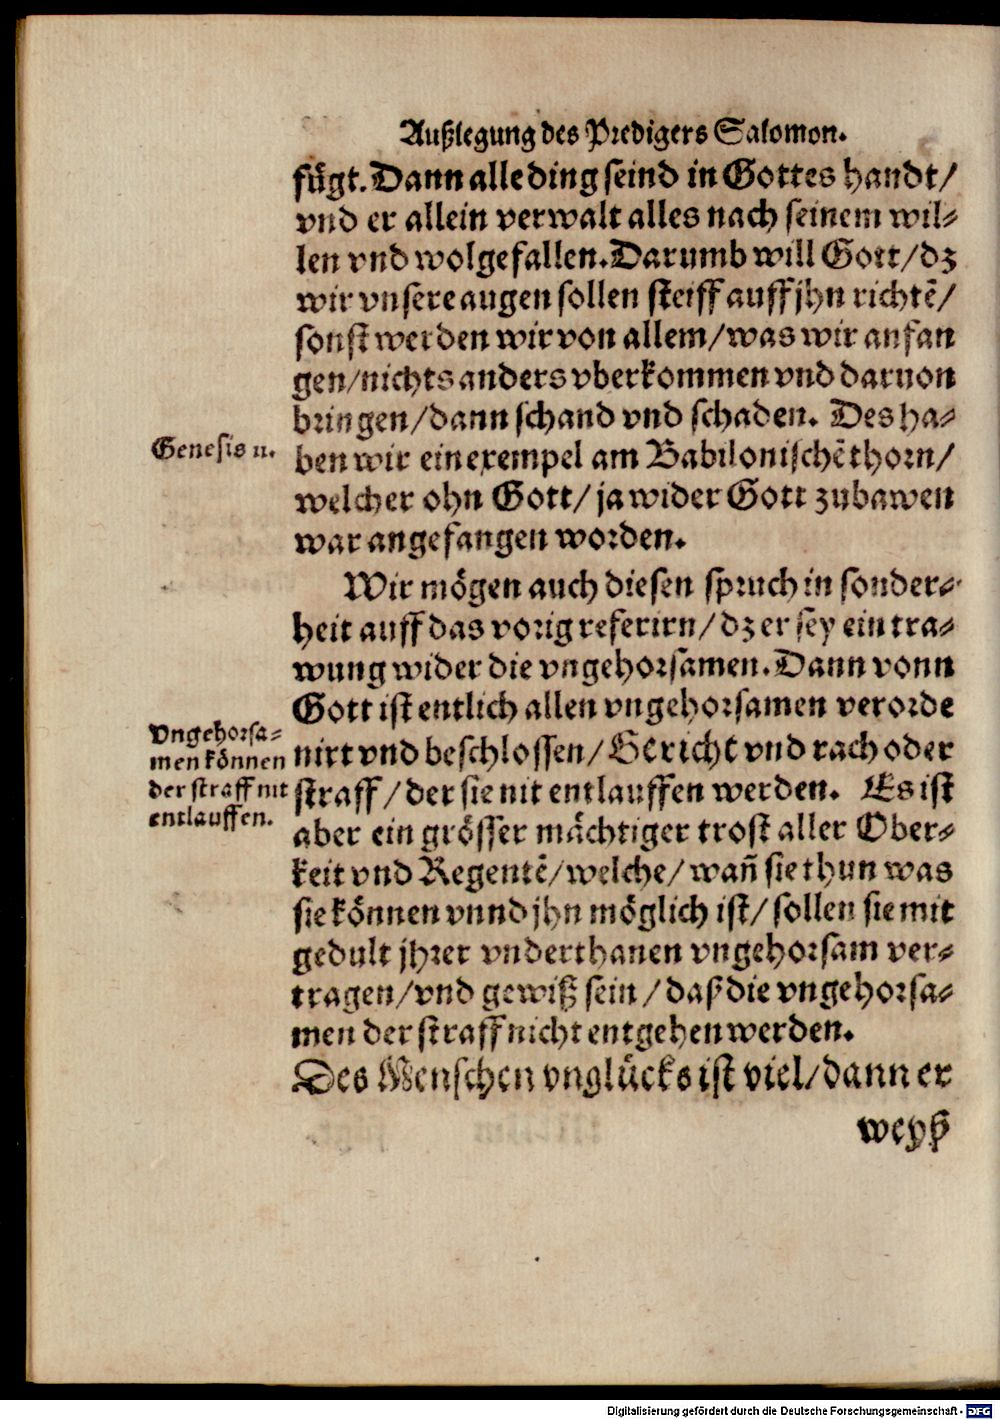 Außlegung des Predigers Salomon.
fügt. Dann alle ding seind in Gottes handt/
vnd er allein verwalt alles nach seinem wil-
len vnd wolgefallen. Darumb will Gott/ dz
wir vnsere augen sollen steiff auff jhn richtẽ/
sonst werden wir von allem/ was wir anfan
gen/ nichts anders vberkommen vnd daruon
bringen/ dann schand vnd schaden. Des ha-
Genesis 11.
ben wir ein exempel am Babilonischẽ thorn/
welcher ohn Gott/ ja wider Gott zubawen
war angefangen worden.
Wir mögen auch diesen spruch in sonder-
heit auff das vorig referirn/ dz er sey ein tra-
wung wider die vngehorsamen. Dann vonn
Gott ist entlich allen vngehorsamen verorde
Vngehorsa-
men können
der straff nit
entlauffen.
nirt vnd beschlossen/ Gericht vnd rach oder
straff/ der sie nit entlauffen werden. Es ist
aber ein grösser mächtiger trost aller Ober-
keit vnd Regentẽ/ welche/ wañ sie thun was
sie können vnnd jhn möglich ist/ sollen sie mit
gedult jhrer vnderthanen vngehorsam ver-
tragen/ vnd gewiß sein/ daß die vngehorsa-
men der straff nicht entgehen werden.
Des Menschen vnglücks ist viel/ dann er
weyß
Digitalisierung gefördert durch die Deutsche Forschungsgemeinschaft - DFG